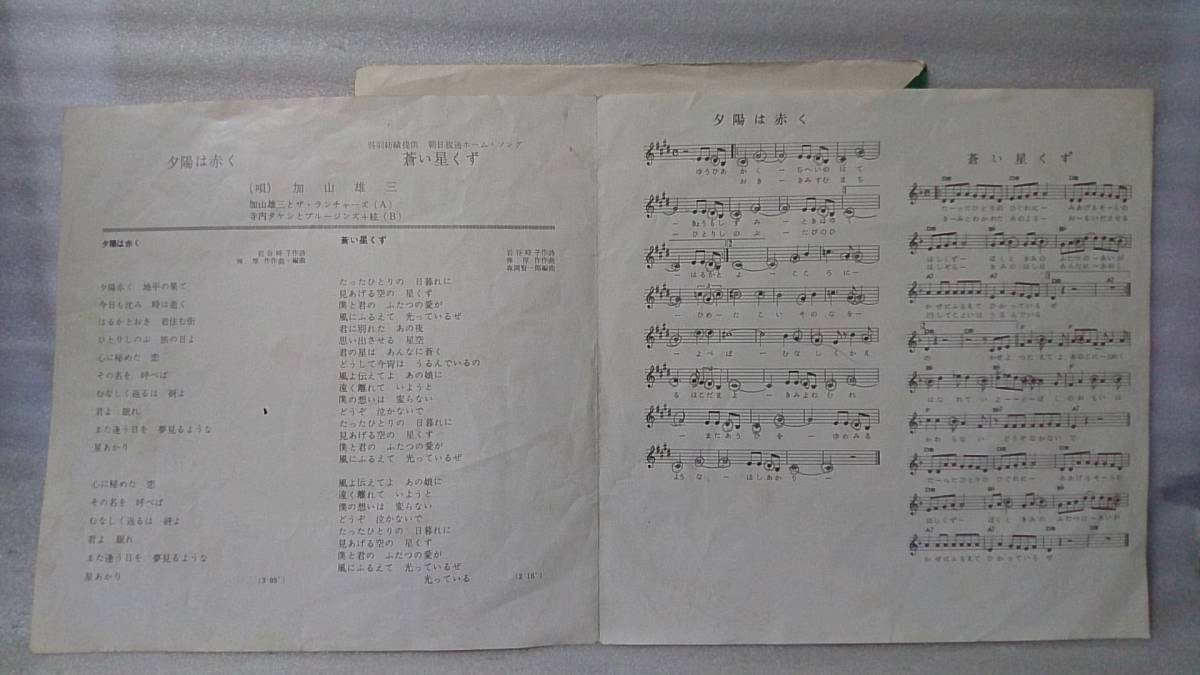 呉羽紡績提供 朝日放送ホーム・ソング
夕陽は赤く
蒼い星くず
(唄) 加山雄三
加山雄三とザ・ランチャーズ(A)
寺内タケシとブルージーンズ+絃(B)
夕陽は赤く
岩谷時子作詩
弾厚作作曲・編曲
夕陽赤く 地平の果て
今日も沈み 時は逝く
はるかとおき 君住む街
ひとりしのぶ 旅の日よ
心に秘めた 恋
その名を 呼べば
むなしく返るは 谺よ
君よ 眠れ
また逢う日を 夢見るような
星あかり
心に秘めた 恋
その名を 呼べば
むなしく返るは 谺よ
君よ 眠れ
また逢う日を 夢見るような
星あかり
(3 05')
蒼い星くず
岩谷時子作詩
弾厚作作曲
森岡賢一郎編曲
たったひとりの 日暮れに
見あげる空の 星くず
僕と君の ふたつの愛が
風にふるえて 光っているぜ
君に別れた あの夜
思い出させる 星空
君の星は あんなに蒼く
どうして今宵は うるんでいるの
風よ伝えてよ あの娘に
遠く離れて いようと
僕の想いは 変らない
どうぞ 泣かないで
たったひとりの 日暮れに
見あげる空の 星くず
僕と君の ふたつの愛が
風にふるえて 光っているぜ
風よ伝えてよ あの娘に
遠く離れて いようと
僕の想いは 変らない
どうぞ 泣かないで
たったひとりの 日暮れに
見あげる空の 星くず
僕と君の ふたつの愛が
風にふるえて 光っているぜ
光っている
(2 18')
夕陽は赤く
ゆうひあ かく ー ちへいの はて
おき ー きみすむ まち
ー きょうもしずみ ー ときはゆく
ー ひとりしのぶ ー たびのひ
はるかと よ こころに ー
ー ひめ ー た こい そのなを ー
ー よべば ー むなしくかえ
る はこだまよ ー きみよねむれ
ー またあう ひを ー ゆめみる
ような ー ほしあかり ー
蒼い星くず
たーったひとりの ひぐれに ー みあげるそーらの
きーみとわかれた あのよる ー おーもいださせる
ほしくずー ぼくと きみの ふたつのーあいが
ほしぞらー きみの ほしは あんなにーあおく
かぜにふるえて ひかっている ぜ
どうしてこよいは うるんでいる
の かぜよ つたえてよ あのこにー とおく
はなれて いよーーうと ぼくの おもいは
かわらない どうぞなかないで
たーったひとりの ひぐれに ー みあげるそーらの
ほしくずー ぼくと きみの ふたつのーあいが
かぜにふるえて ひかっている ぜ